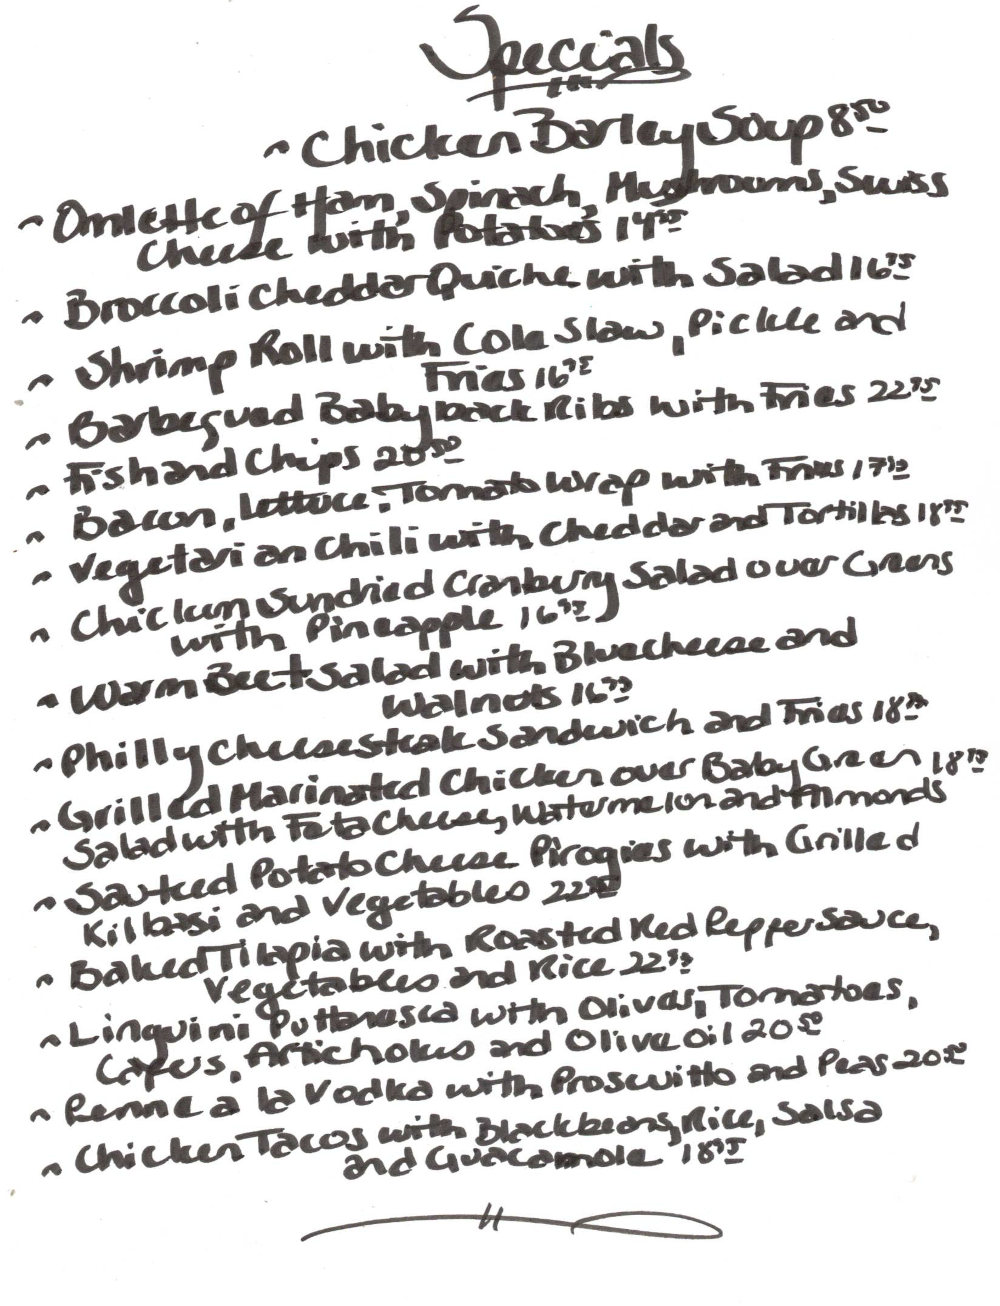 Specials
~ Chicken Barley Soup 8.50
~ Omlette of Ham, Spinach, Mushrooms, Swiss
Cheese with Potatoes 14.75
~ Broccoli Cheddar Quiche with Salad 16.75
~ Shrimp Roll with Cole Slaw, Pickle and
Fries 16.75
~ Barbequed Baby back Ribs with Fries 22.75
~ Fish and Chips 20.50
~ Bacon, Lettuce, Tomato Wrap with Fries 17.50
~ Vegetarian Chili with Cheddar and Tortillas 18.75
~ Chicken Sundried Cranberry Salad over Greens
with Pineapple 16.75
~ Warm Beet Salad with Bluecheese and
Walnuts 16.75
~ Philly Cheesesteak Sandwich and Fries 18.75
~ Grilled Marinated Chicken over Baby Green 18.75
Salad with Feta Cheese, Watermelon and Almonds
~ Sauteed Potato Cheese Pirogies with Grilled
Kilbasi and Vegetables 22.50
~ Baked Tilapia with Roasted Red Pepper Sauce,
Vegetables and Rice 22.75
~ Linguini Puttanesca with Olives, Tomatoes,
Capers, Artichokes and Olive Oil 20.50
~ Penne a la Vodka with Proscuitto and Peas 20.50
~ Chicken Tacos with Blackbeans, Rice, Salsa
and Guacamole 18.75